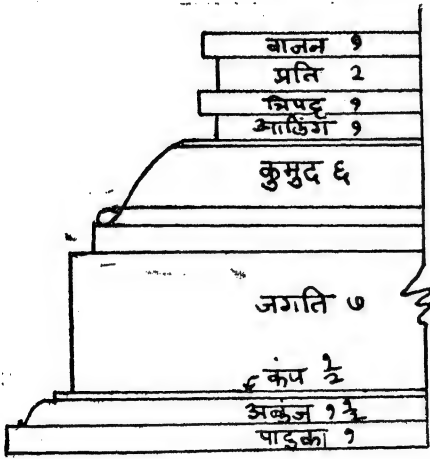 वाजन १
प्रति २
त्रिपट्ट १
आलिंग १
कुमुद ६
जगति ७
कंप १/२
अब्जंज १ १/२
पादुका १